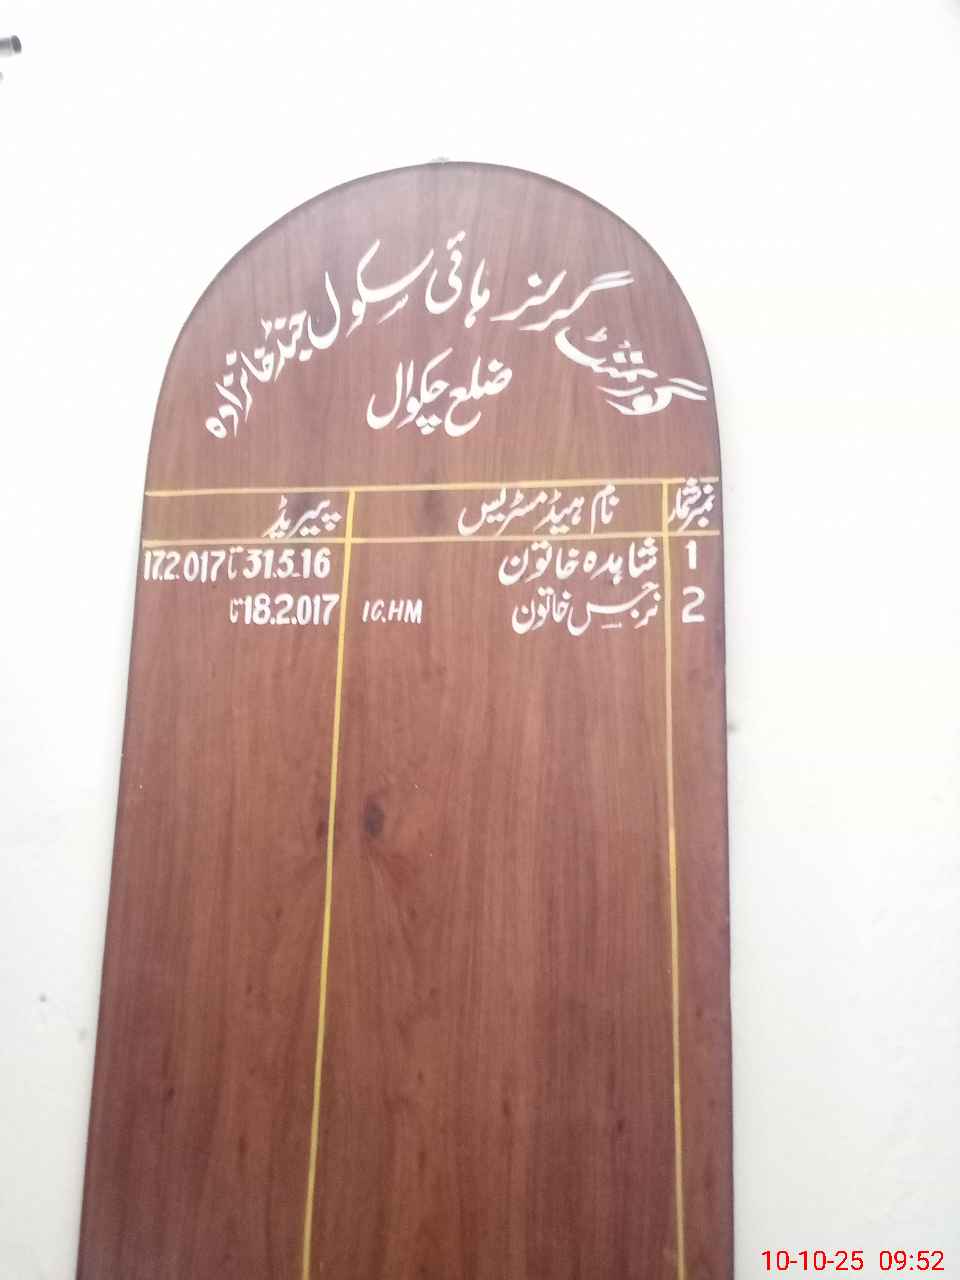 گورنمنٹ گرلز ہائی سکول جنڈ خانزادہ
ضلع چکوال
نمبر شمار نام ہیڈ مسٹریس پیریڈ
1 شاہدہ خاتون 31.5.16 تا 17.2.017
2 نرجس خاتون IC.HM 18.2.017 تا
10-10-25 09:52